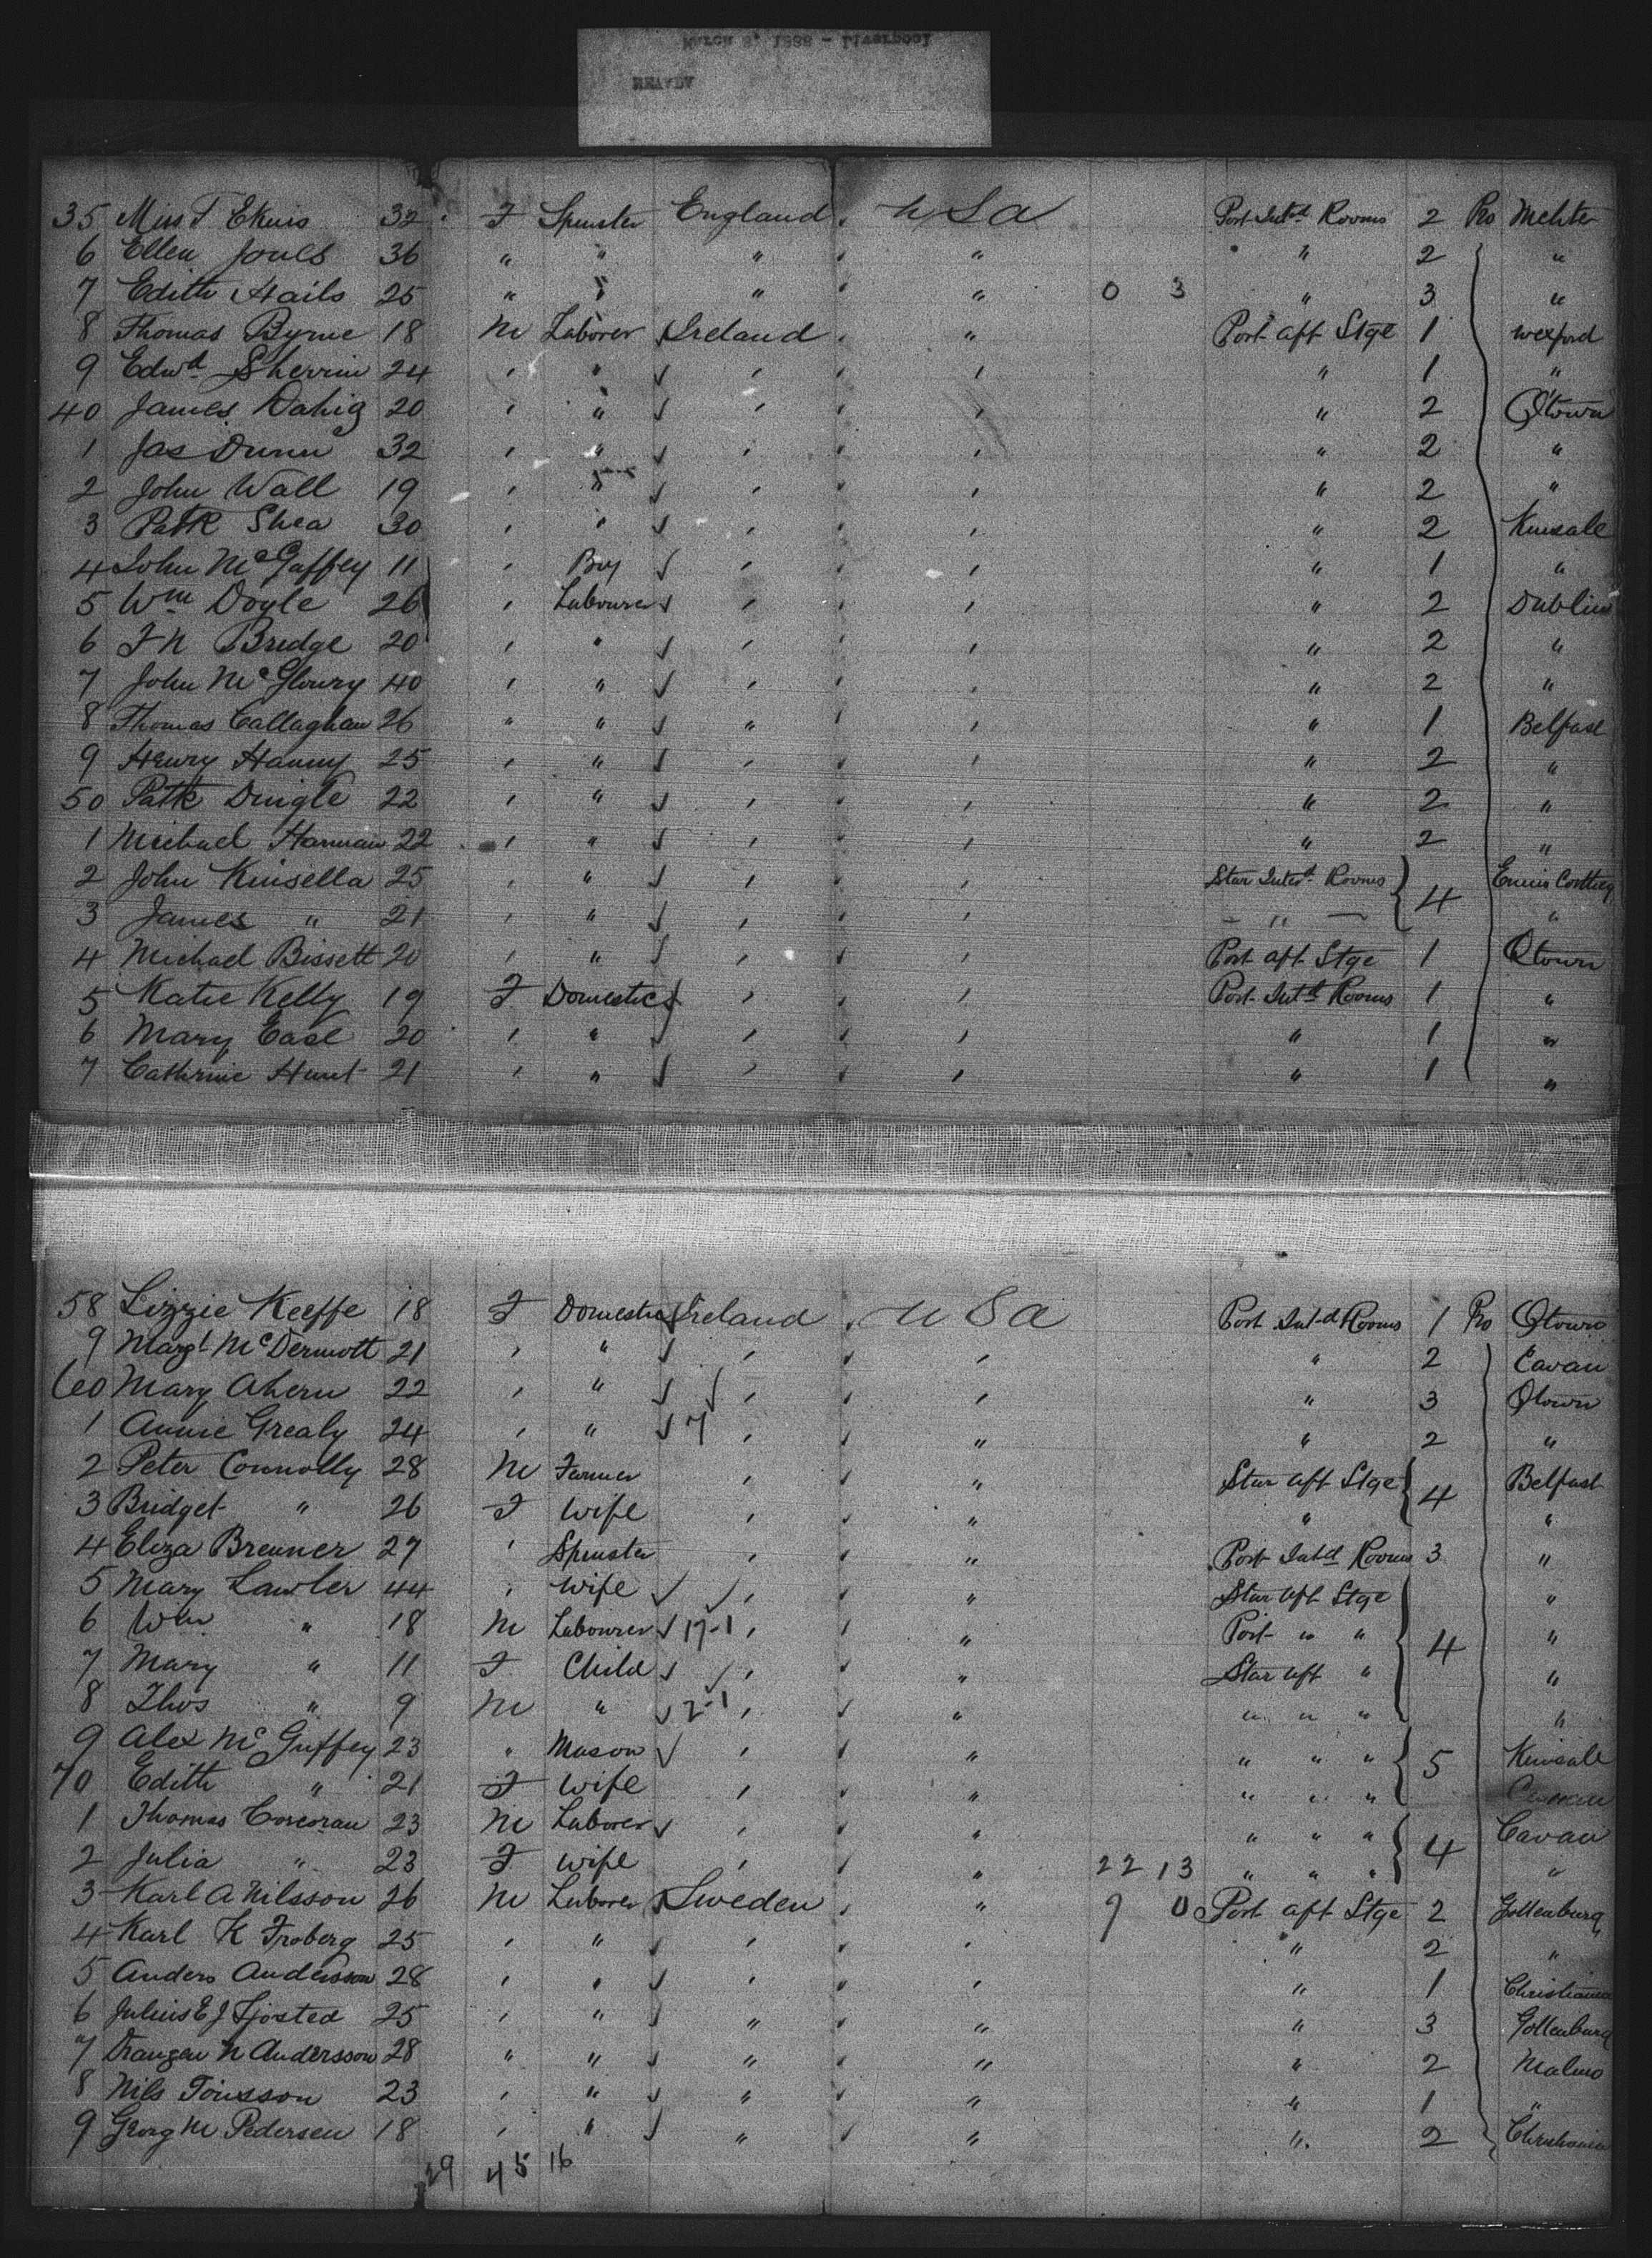 March 8, 1888 - Liverpool
35 Miss T Ekins 32 F Spinster England U S A Port Intd Rooms 2 Pro Mchter
6 Ellen Jones 36 " " " " " 2 "
7 Edith Hails 25 " " " " 0 3 " 3 "
8 Thomas Byrne 18 M Laborer Ireland " Port aft Stge 1 Wexford
9 Edwd Sherrin 24 " " " " " 1 "
40 James Dahig 20 " " " " " 2 Qtown
1 Jas Dunn 32 " " " " " 2 "
2 John Wall 19 " " " " " 2 "
3 Patk Shea 30 " " " " " 2 Kinsale
4 John McGaffey 11 " Boy " " " 1 "
5 Wm Doyle 26 " Labourer " " " 2 Dublin
6 F N Bridge 20 " " " " " 2 "
7 John McGlowry 40 " " " " " 2 "
8 Thomas Callaghan 26 " " " " " 1 Belfast
9 Henry Hanny 25 " " " " " 2 "
50 Patk Dingle 22 " " " " " 2 "
1 Michael Hannan 22 " " " " " 2 "
2 John Kinsella 25 " " " " Star Inted Rooms 4 Ennis Corthey
3 James " 21 " " " " " "
4 Michael Bissett 20 " " " " Port aft Stge 1 Qtown
5 Katie Kelly 19 F Domestic " " Port Intd Rooms 1 "
6 Mary Ease 20 " " " " " 1 "
7 Cathrine Hunt 21 " " " " " 1 "
58 Lizzie Keeffe 18 F Domestic Ireland U S A Port Intd Rooms 1 Pro Qtown
9 Margt McDermott 21 " " " " " 2 Cavan
60 Mary Ahern 22 " " " " " 3 Qtown
1 Annie Grealy 24 " " 7 " " " 2 "
2 Peter Connolly 28 M Farmer " " Star aft Stge 4 Belfast
3 Bridget " 26 F Wife " " " "
4 Eliza Brenner 27 " Spinster " " Port Intd Rooms 3 "
5 Mary Lawler 44 " Wife " " Star aft Stge 4 "
6 Wm " 18 M Labourer 17-1 " " Port " " "
7 Mary " 11 F Child " " Star aft " "
8 Thos " 9 M " 2-1 " " " " " "
9 Alex McGuffey 23 " Mason " " " " " 5 Kinsale
70 Edith " 21 F Wife " " " " "
1 Thomas Corcoran 23 M Laborer " " " " " 4 Cavan
2 Julia " 23 F Wife " " 22 13 " " " "
3 Karl A Nilsson 26 M Laborer Sweden " 7 0 Port aft Stge 2 Gottenburg
4 Karl K Froberg 25 " " " " " 2 "
5 Anders Andersson 28 " " " " " 1 Christiania
6 Julius E J Fjosted 25 " " " " " 3 Gottenburg
7 N Andersson 28 " " " " " 2 Malmo
8 Nils Tonsson 23 " " " " " 1 "
9 Georg M Pedersen 18 " " " " " 2 Christiania
29 45 16